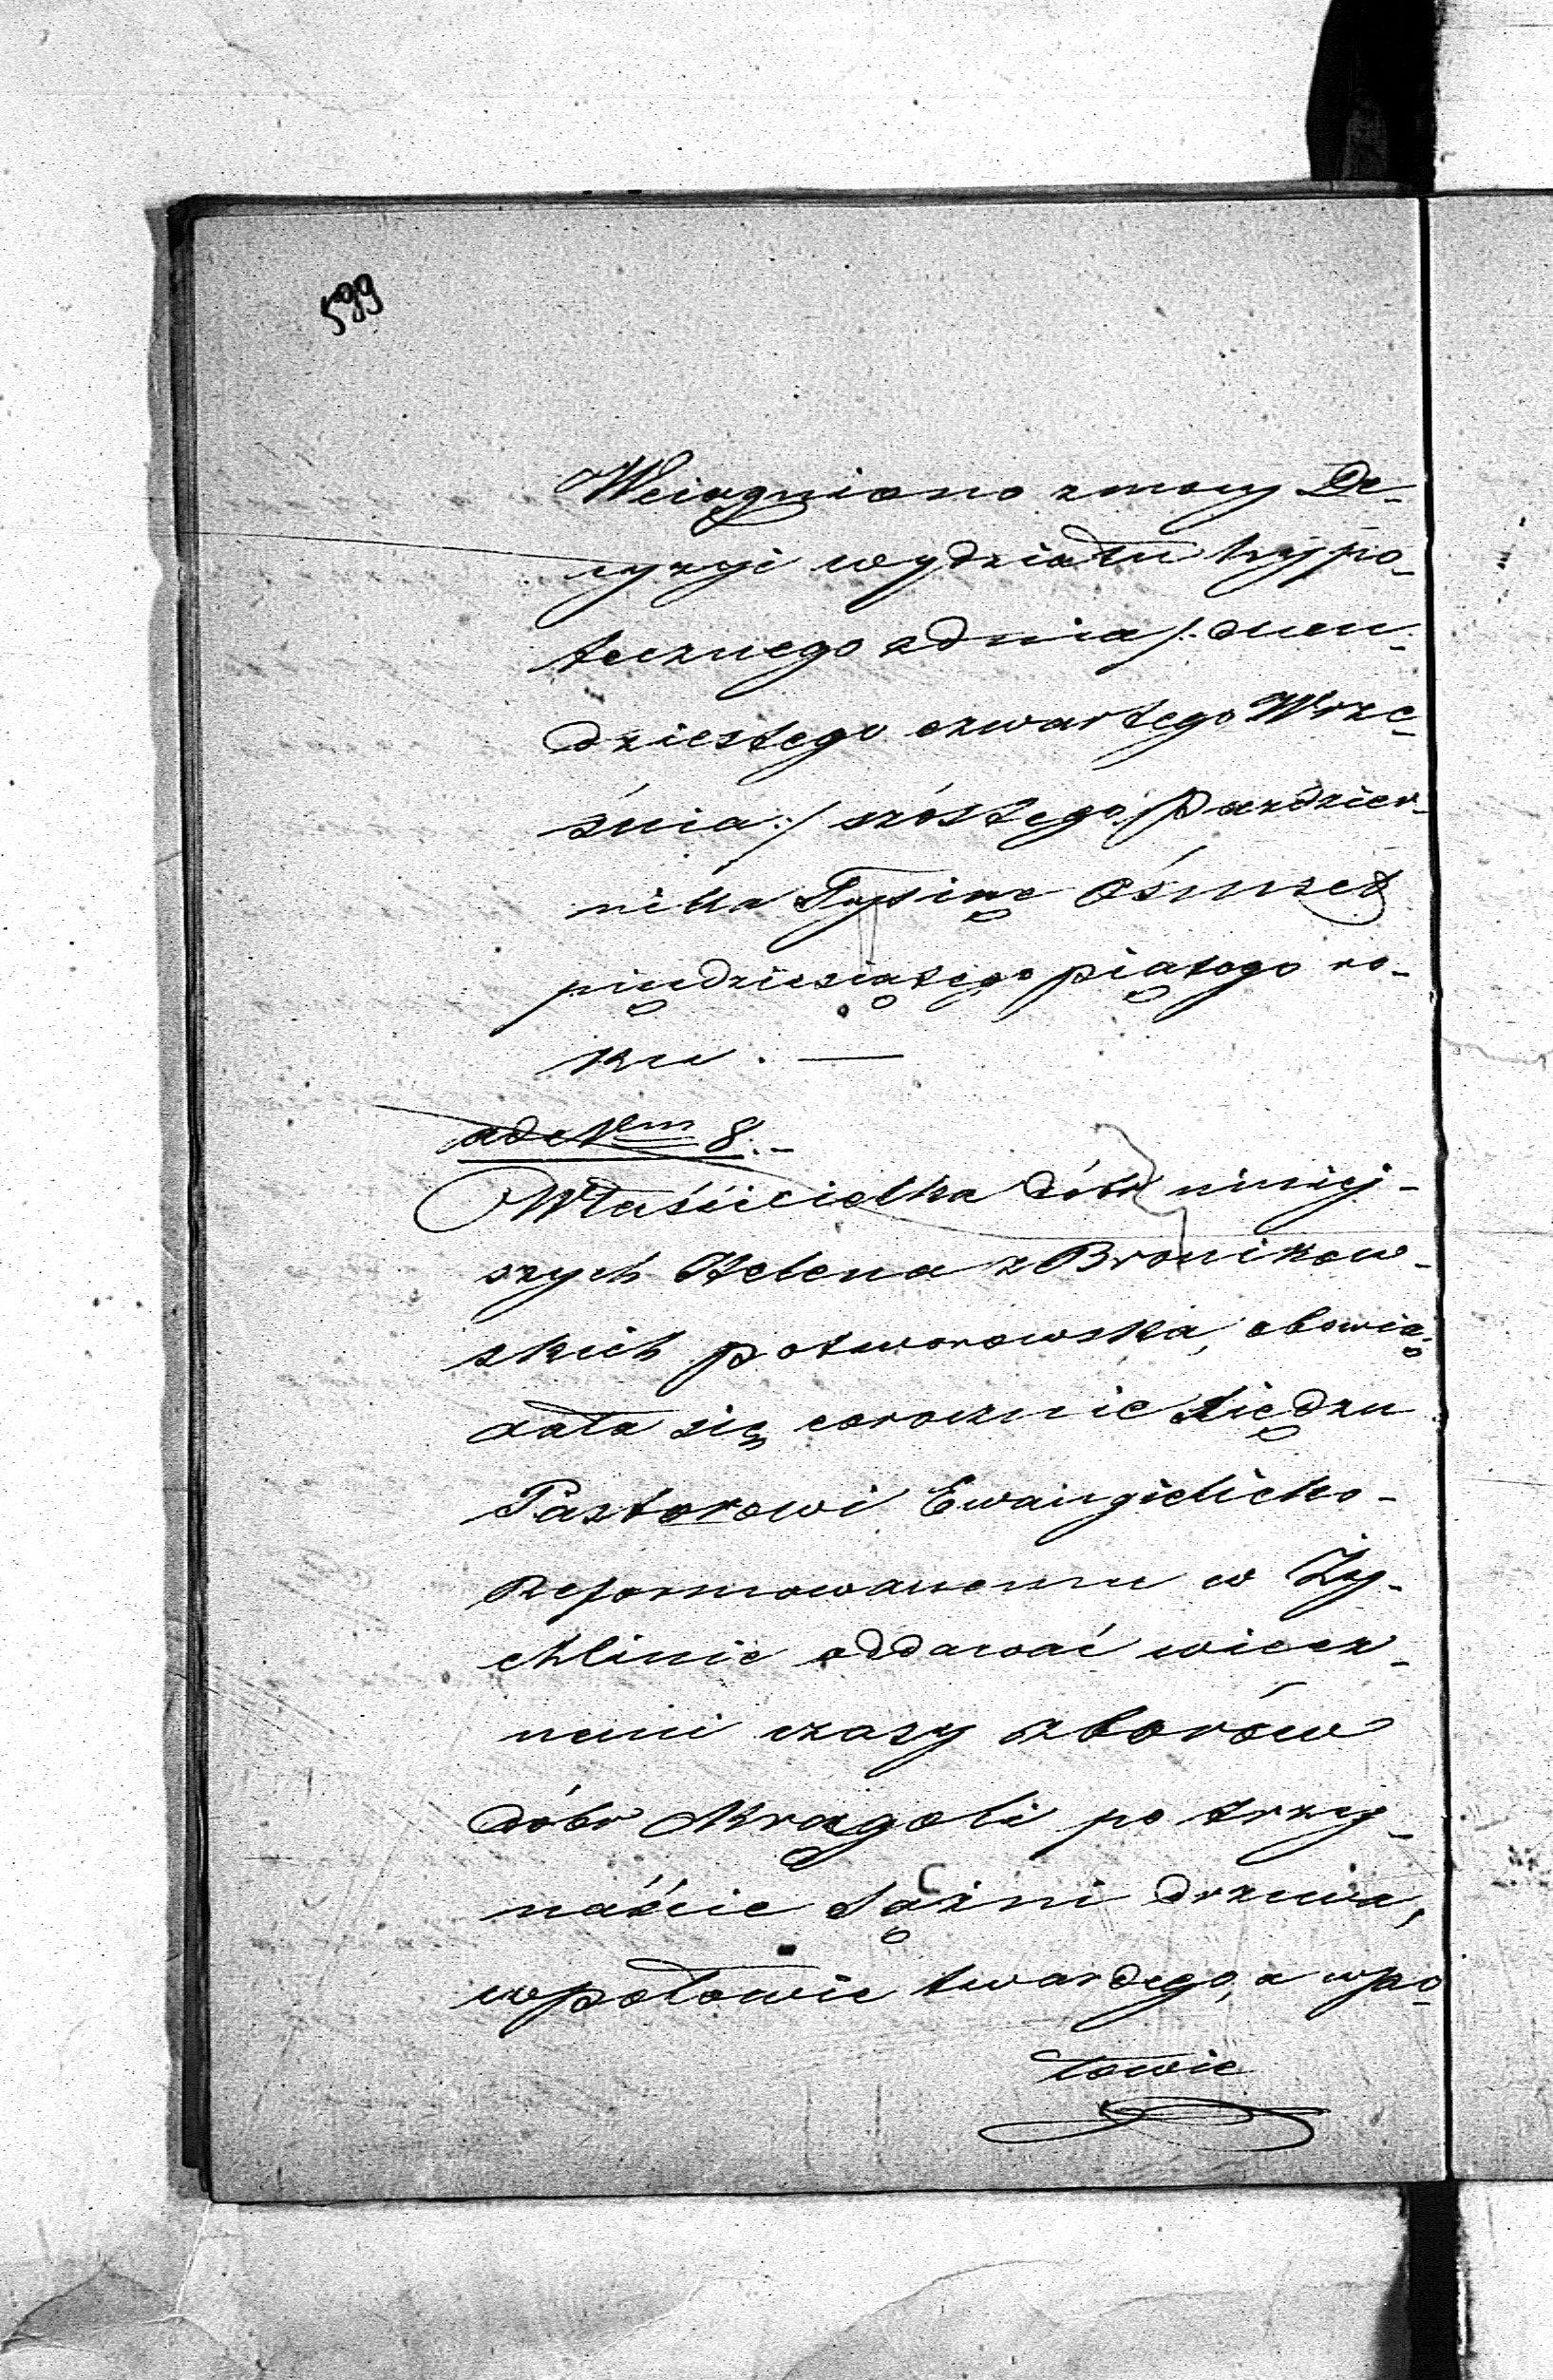 599
Wciągniono z mocy De-
cyzyi wydziału hypo-
tecznego z dnia /: dwu-
dziestego czwartego Wrze-
śnia :/ szóstego Paździer-
nika Tysiąc Ośmset
pięćdziesiątego piątego ro-
ku. —
ad Num 8. -
Właścicielka dóbr niniej-
szych Helena z Bronikow-
skich Potworowska, obowią-
zała się corocznie Księdzu
Pastorowi Ewangielicko-
Reformowanemu w Ży-
chlinie oddawać wiecz-
nemi czasy z borów
dóbr Krągoli po trzy-
naście sążni drzewa,
w połowie twardego, a w po-
łowie